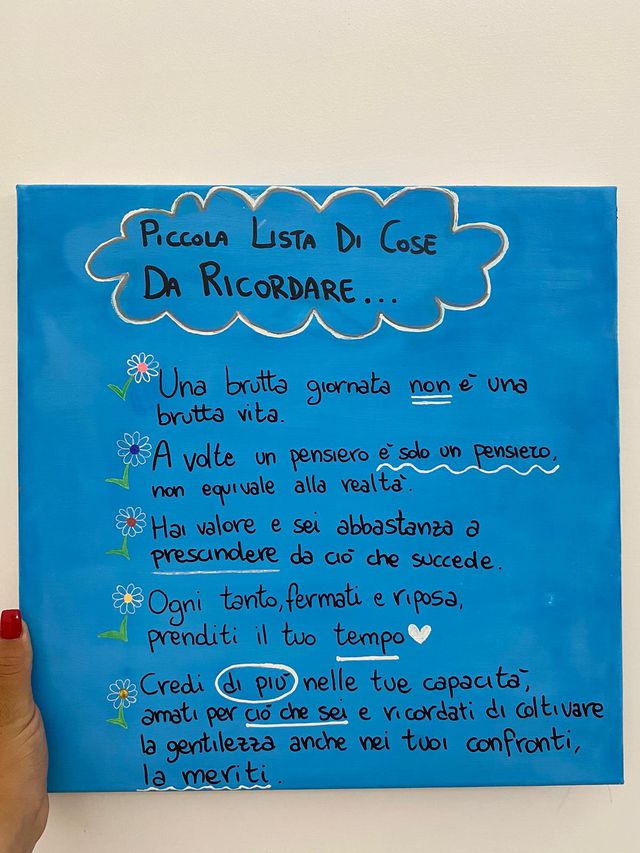 PICCOLA LISTA DI COSE
DA RICORDARE...
Una brutta giornata non è una
brutta vita.
A volte un pensiero è solo un pensiero,
non equivale alla realtà.
Hai valore e sei abbastanza a
prescindere da ciò che succede.
Ogni tanto, fermati e riposa,
prenditi il tuo tempo
Credi di più nelle tue capacità,
amati per ciò che sei e ricordati di coltivare
la gentilezza anche nei tuoi confronti,
la meriti.